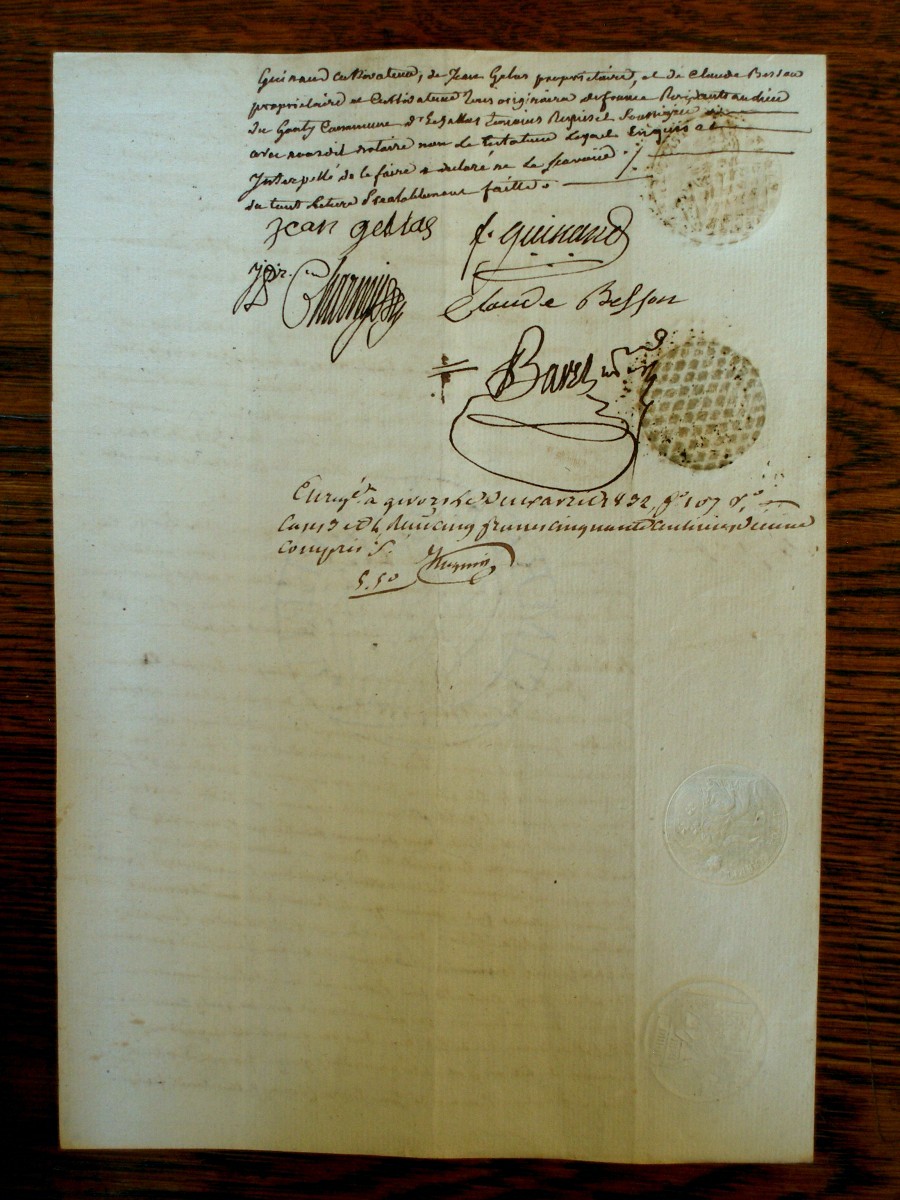 Guinand cultivateur, de Jean Gelas propriétaire, et de Claude Besson
propriétaire et Cultivateur tous originaires de france Residants au lieu
du Commune d'Echallas temoins Requis et Soussignés
avec nousdit notaire non le testateur lequel Enquis et
Interpellé de le faire a declaré ne le scavoir
du tout lecture Prealablement faitte.
jean gellas
f. guinand
Claude Besson
Enregé. a givors le avril 1832, fo. 107 Vo.
Cases 3 et 4, Reçu cinq francs cinquante centimes, dixième
compris
5.50